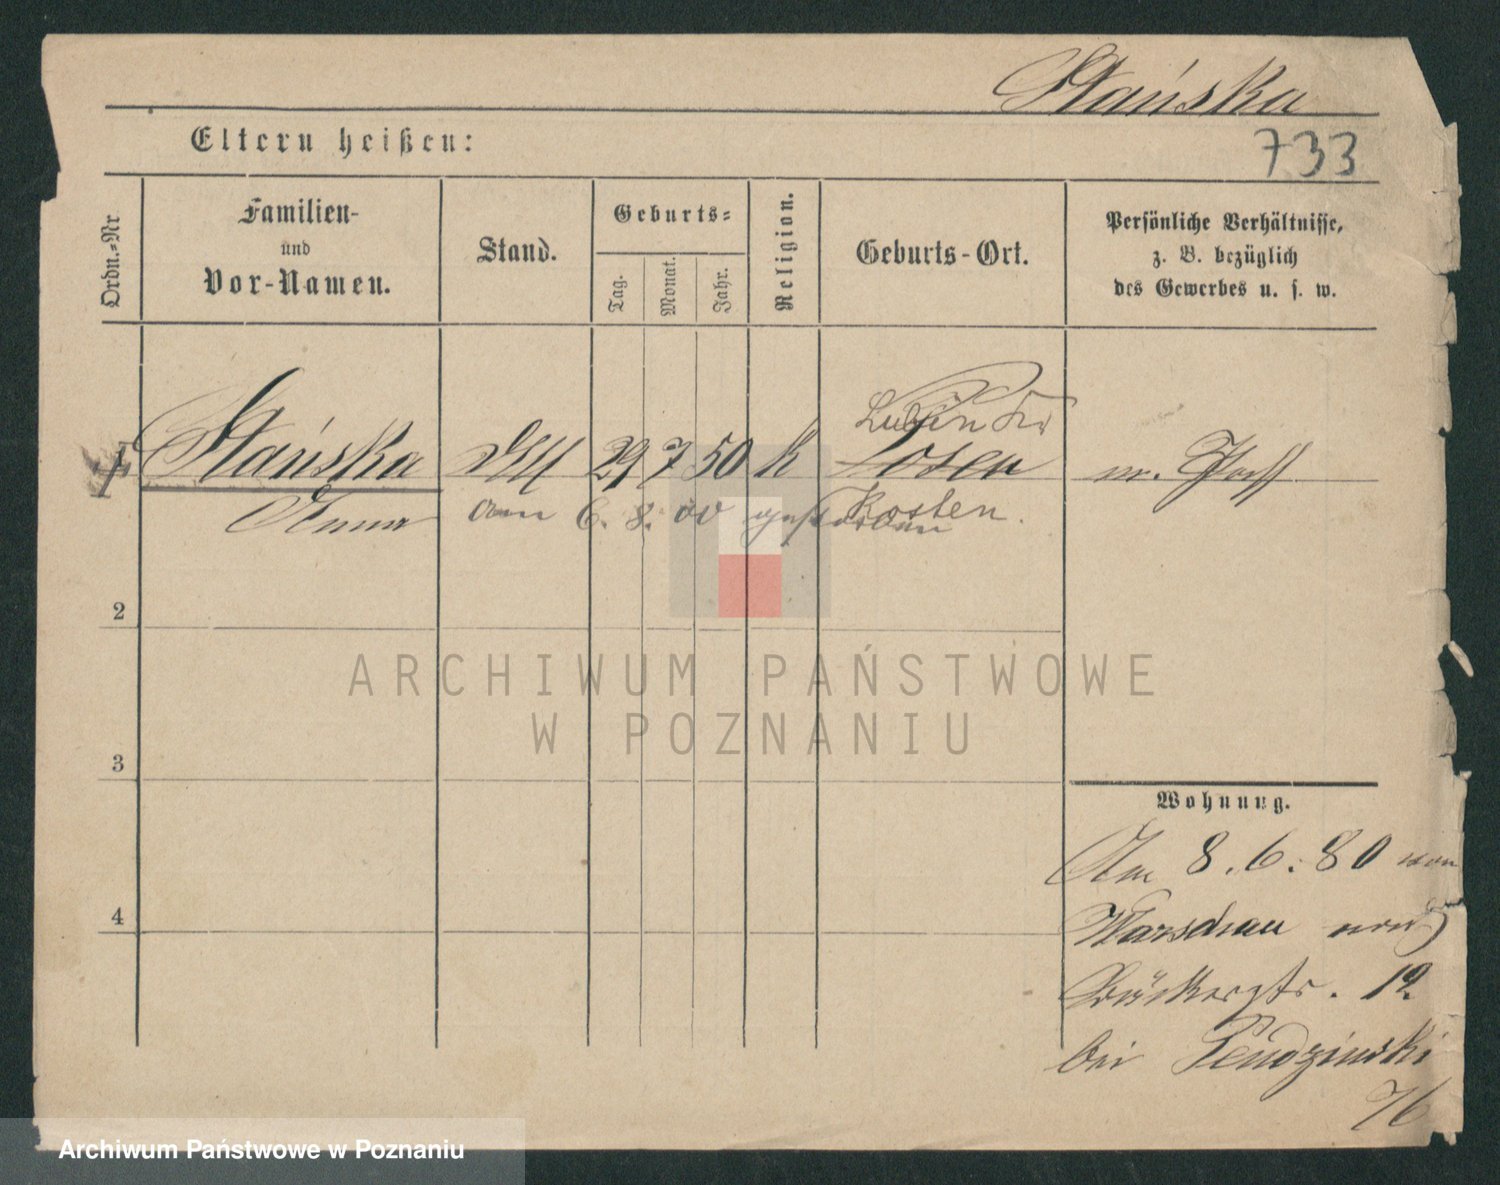 Stańska
Eltern heißen:
733
Ordn.-Nr
Familien-
und
Vor-Namen.
Stand.
Geburts-
Tag.
Monat.
Jahr.
Religion.
Geburts-Ort.
Persönliche Verhältnisse,
z. B. bezüglich
des Gewerbes u. s. w.
1
Stańska
29 7 50 k
Lubin Kr
Posen
Anna
Kosten.
am 6. 8. 80 gestorben
2
ARCHIWUM PAŃSTWOWE
W POZNANIU
3
Wohnung.
Am 8.6.80 von
4
Warschau nach
Bäckerstr. 19
bei
76
Archiwum Państwowe w Poznaniu